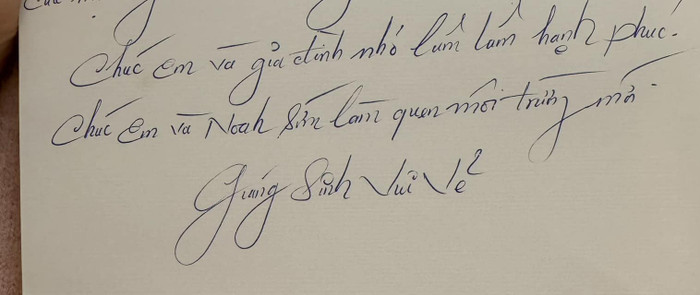 Chúc em và gia đình nhỏ luôn luôn hạnh phúc.
Chúc em và Noah sớm làm quen môi trường mới
Giáng Sinh Vui Vẻ